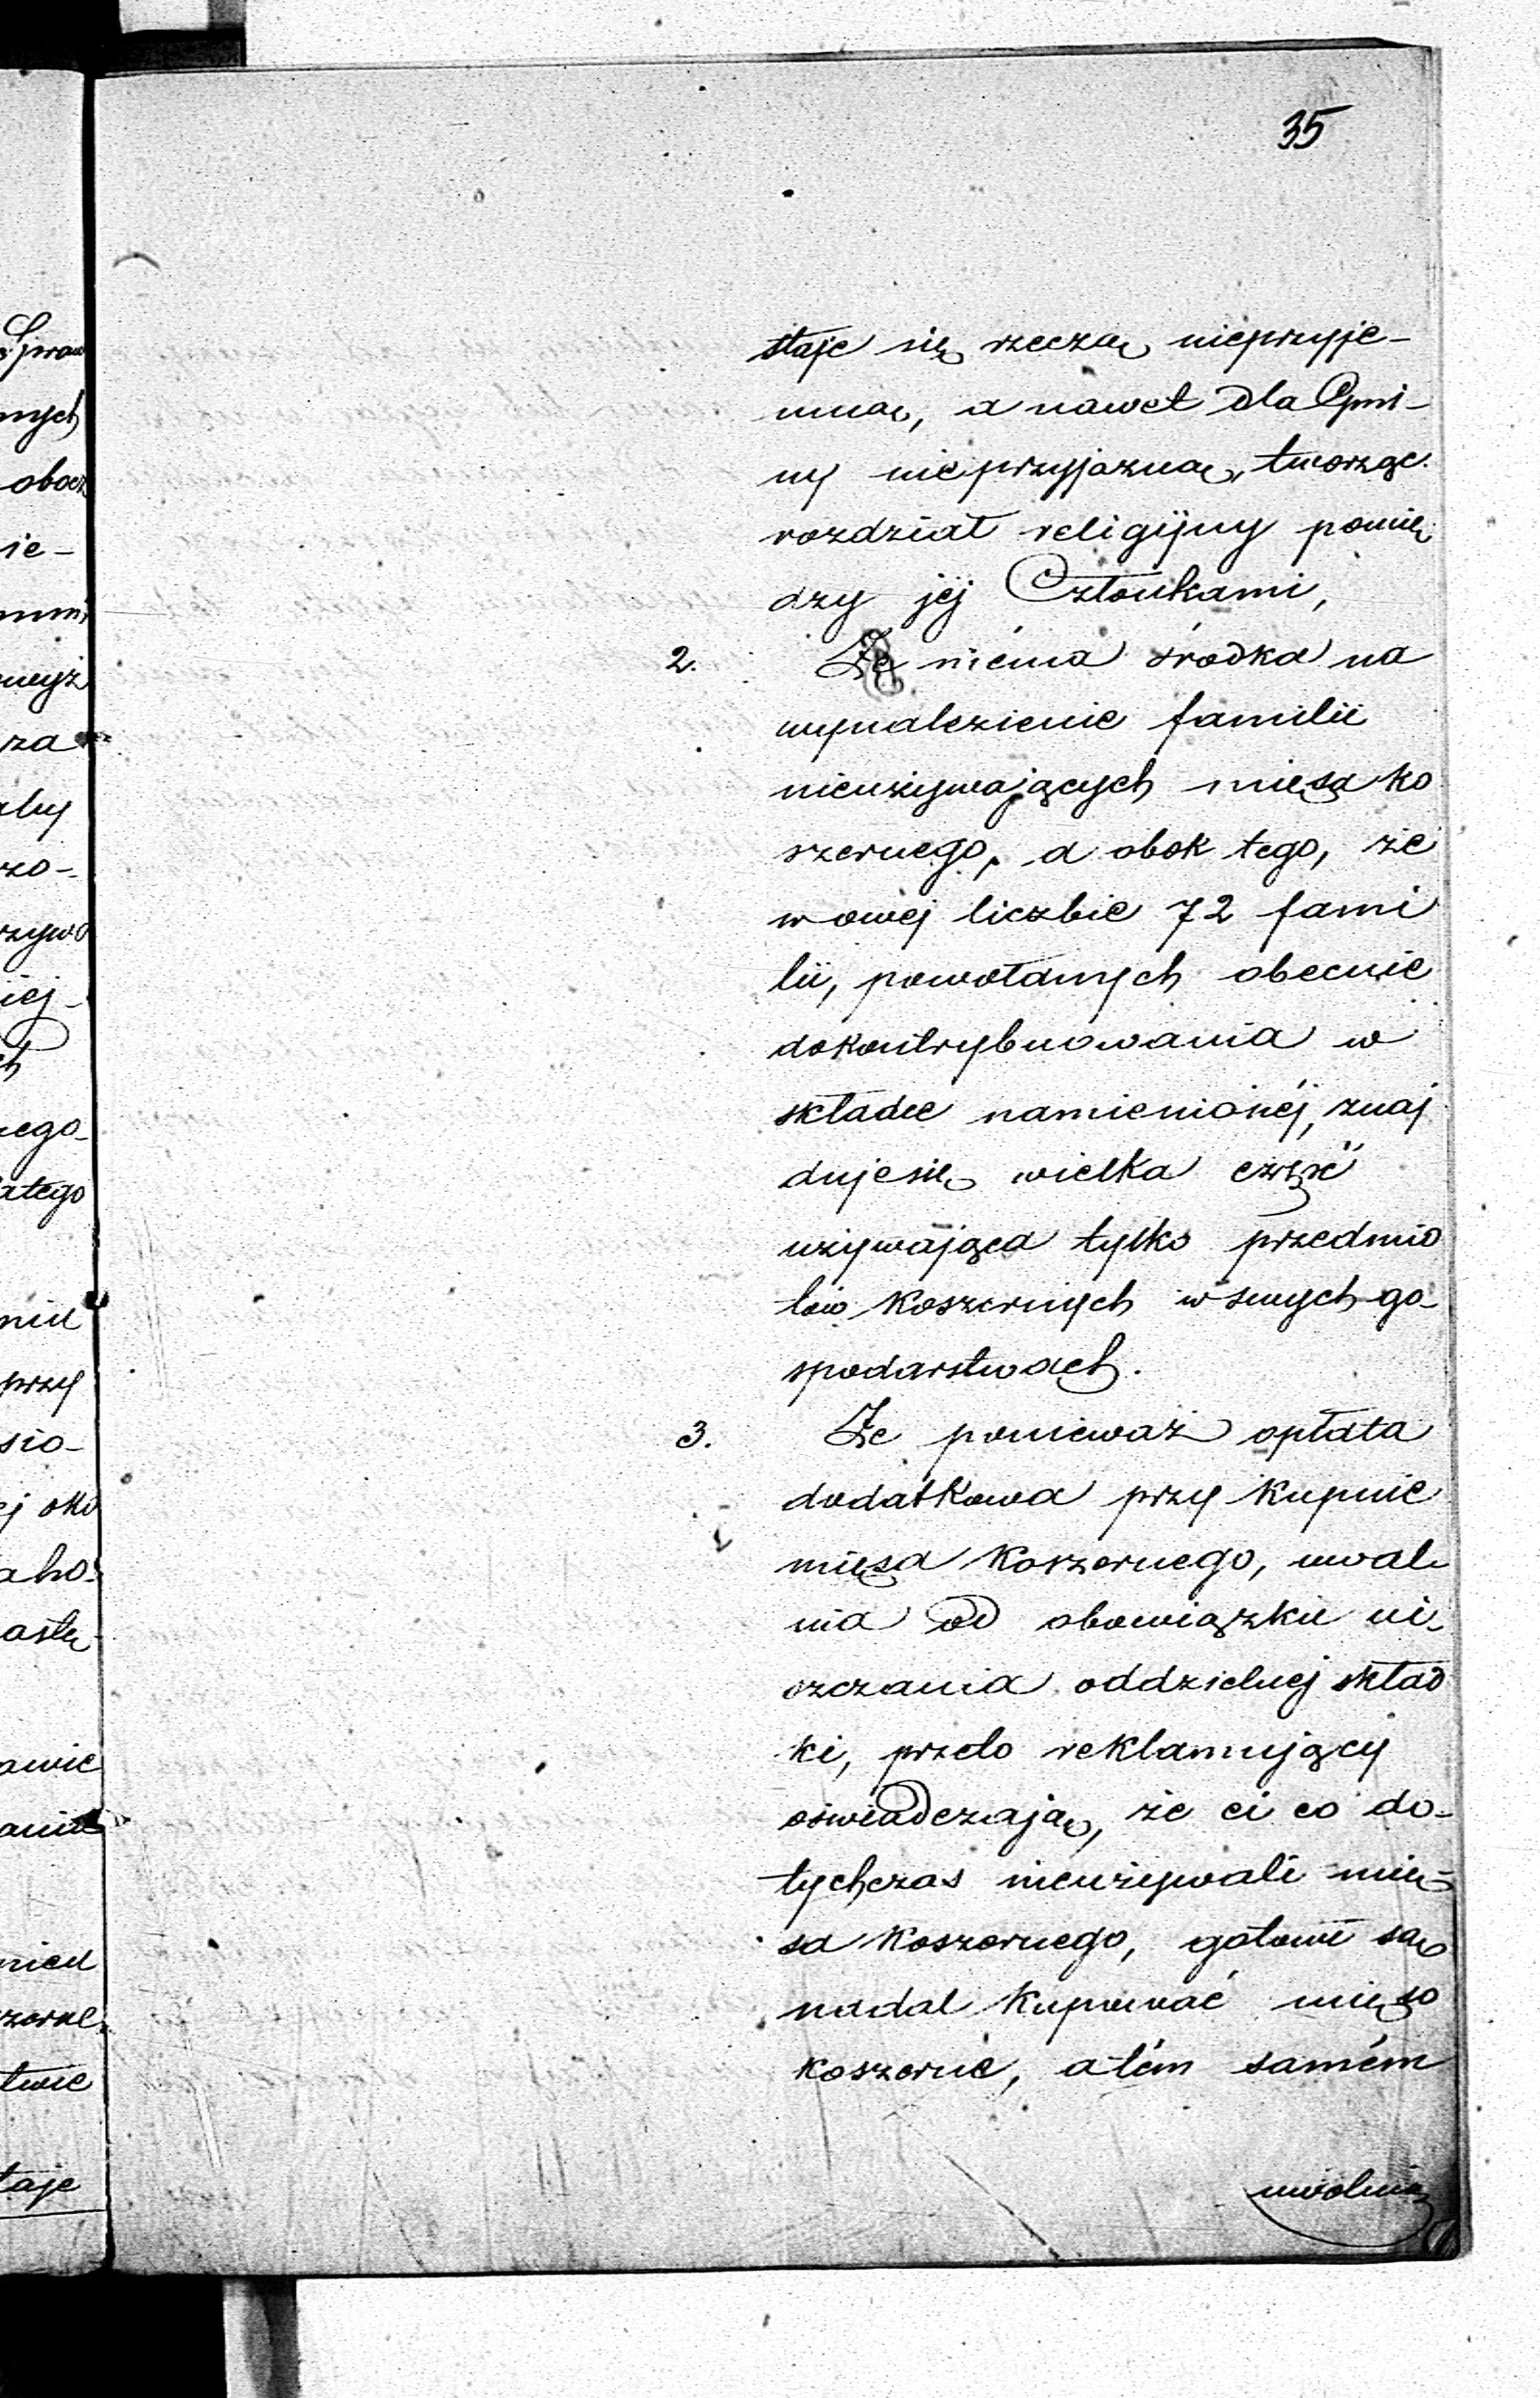 35
staje się rzeczą nieprzyje-
mną, a nawet dla Gmi-
ny nieprzyjazną, tworząc
rozdział religijny pomię
dzy jéj Członkami,
2. Że niéma środka na
wynalezienie familii
nieużywających mięsa ko
szernego, a obok tego, że
w owéj liczbie 72 fami
lii, powołanych obecnie
do kontrybuowania w
składce namienionéj, znaj
duje się wielka część
używająca tylko przedmio
tów koszernych w swych go-
spodarstwach.
3. Że ponieważ opłata
dodatkowa przy kupnie
mięsa koszernego, uwal-
nia od obowiązku ui-
szczania oddzielnej skład
ki, przeto reklamujący
oświadczają, że ci co do-
tychczas nieużywali mię-
sa koszernego, gotowi są
nadal kupować mięso
koszerne, a tém samém
uwolnią